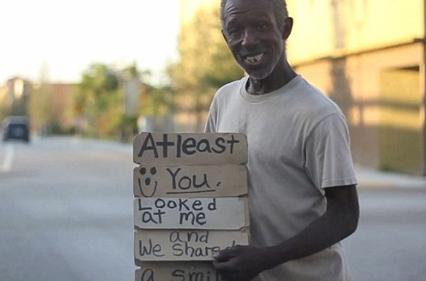 Atleast
You.
Looked
at me
and
We shared
a smile